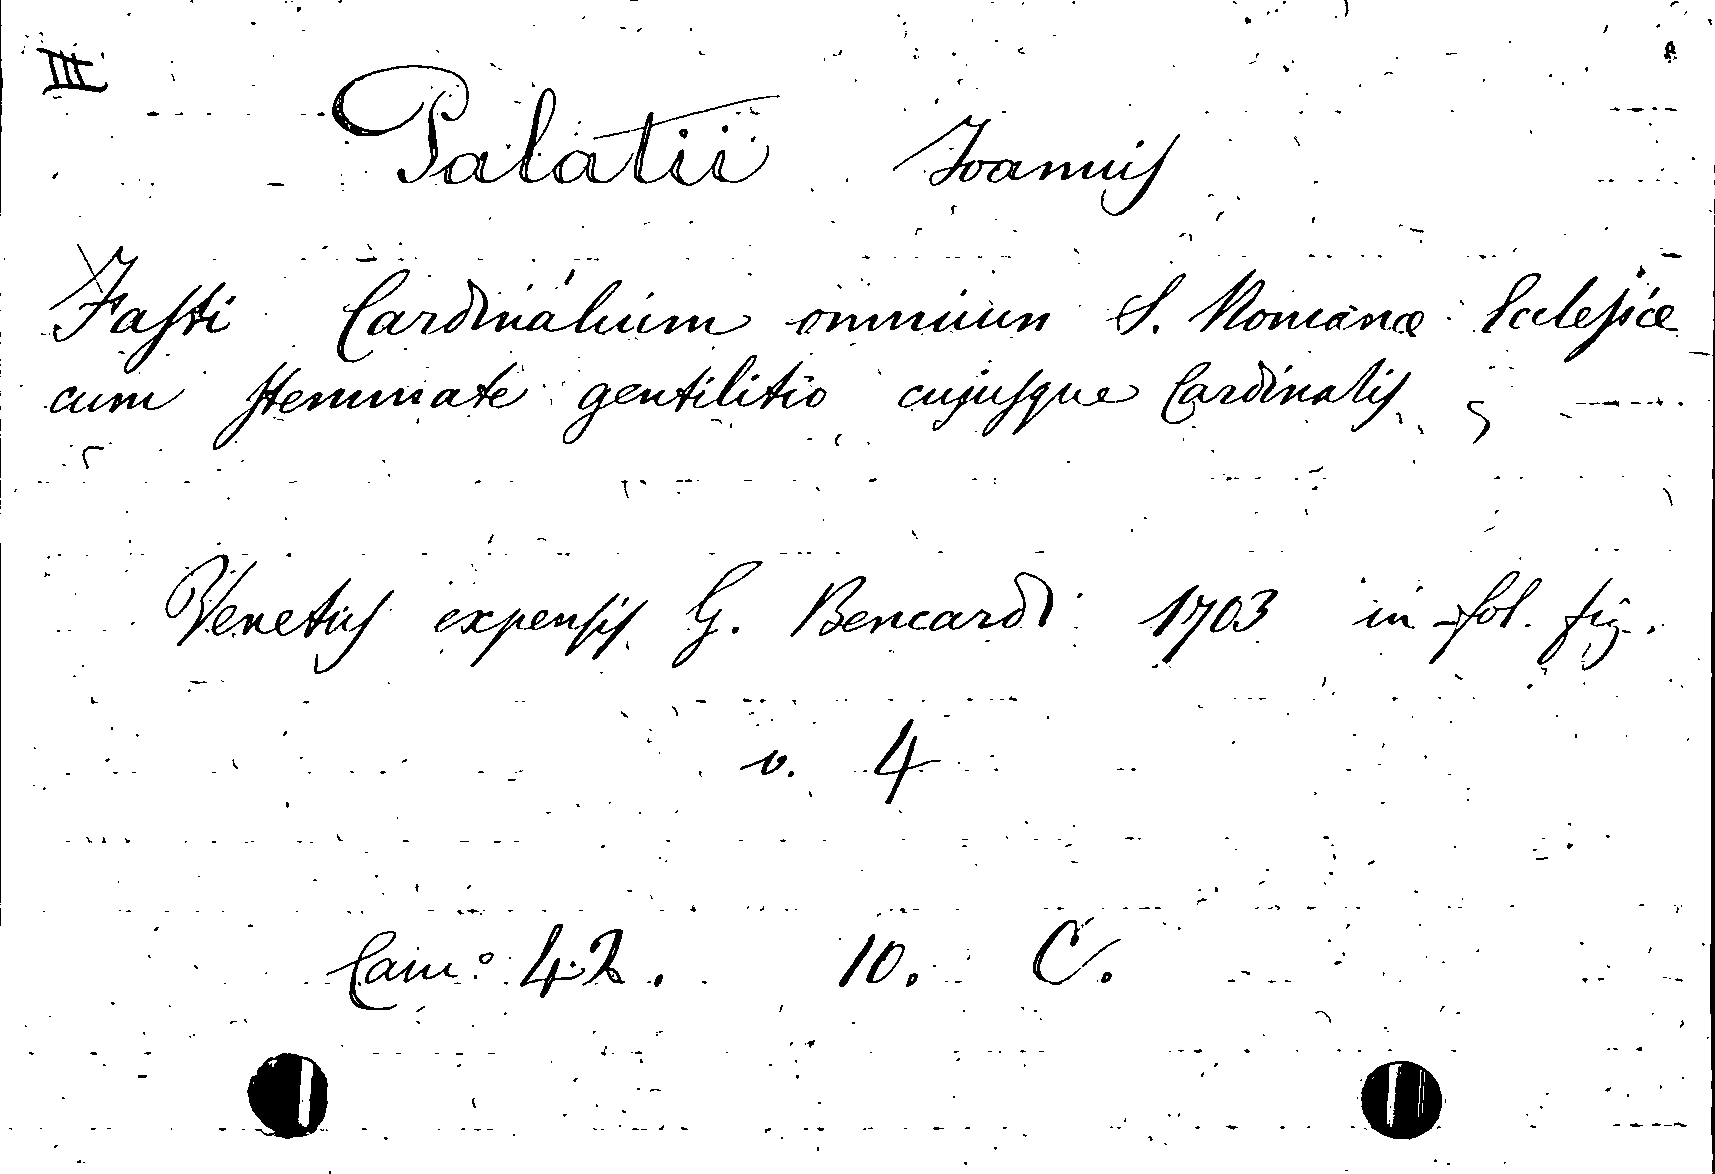 III
Palatii Joannis
Fasti Cardinalium omnium S. Romanæ Eclesiæ
cum stemmate gentilitio cujusque Cardinalis
Venetiis expensis G. Bencardi 1703 in fol. fig.
v. 4
Cam.º 42. 10. C.